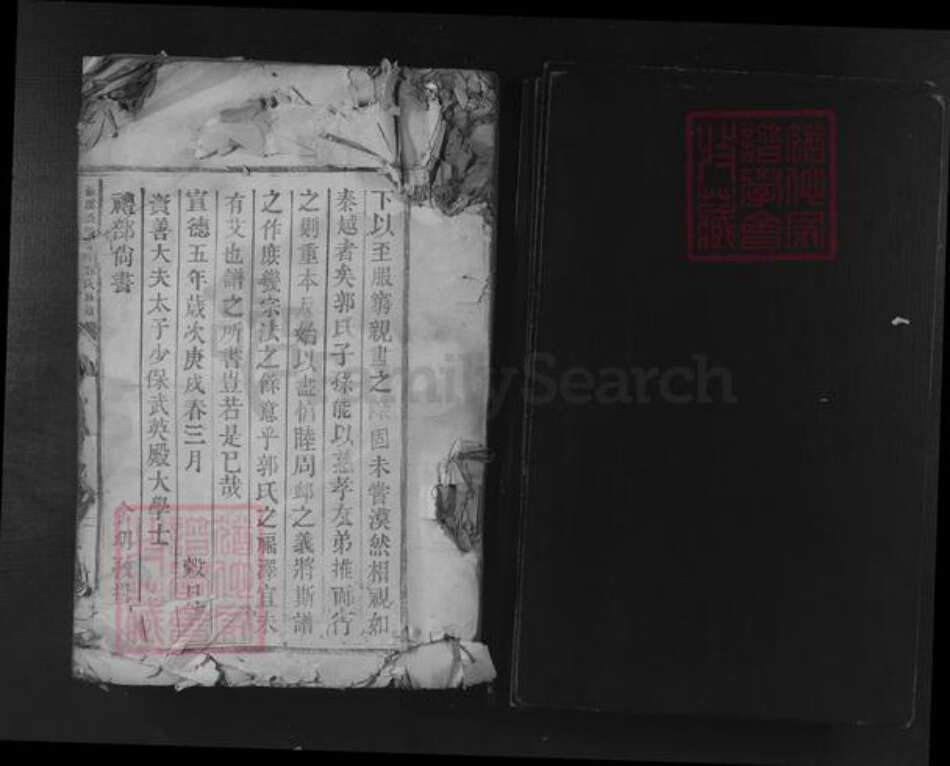 下以至服窮親盡之際固未嘗漠然相視如
秦越者矣郭氏子孫能以慈孝友弟推而行
之則重本原始以盡惇睦周卹之義將斯譜
之作庶幾宗法之餘意乎郭氏之福澤宜未
有艾也譜之所書豈若是已哉
宣德五年歲次庚戌春三月 穀旦
資善大夫太子少保武英殿大學士
禮部尚書 金幼孜撰
譜學會
特藏
FamilySearch